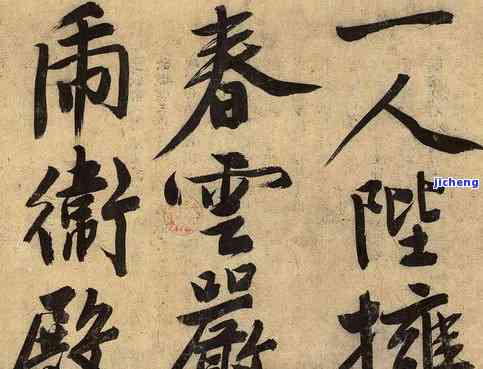 一人陛擁
春雲嚴
乕衛殿
jicheng